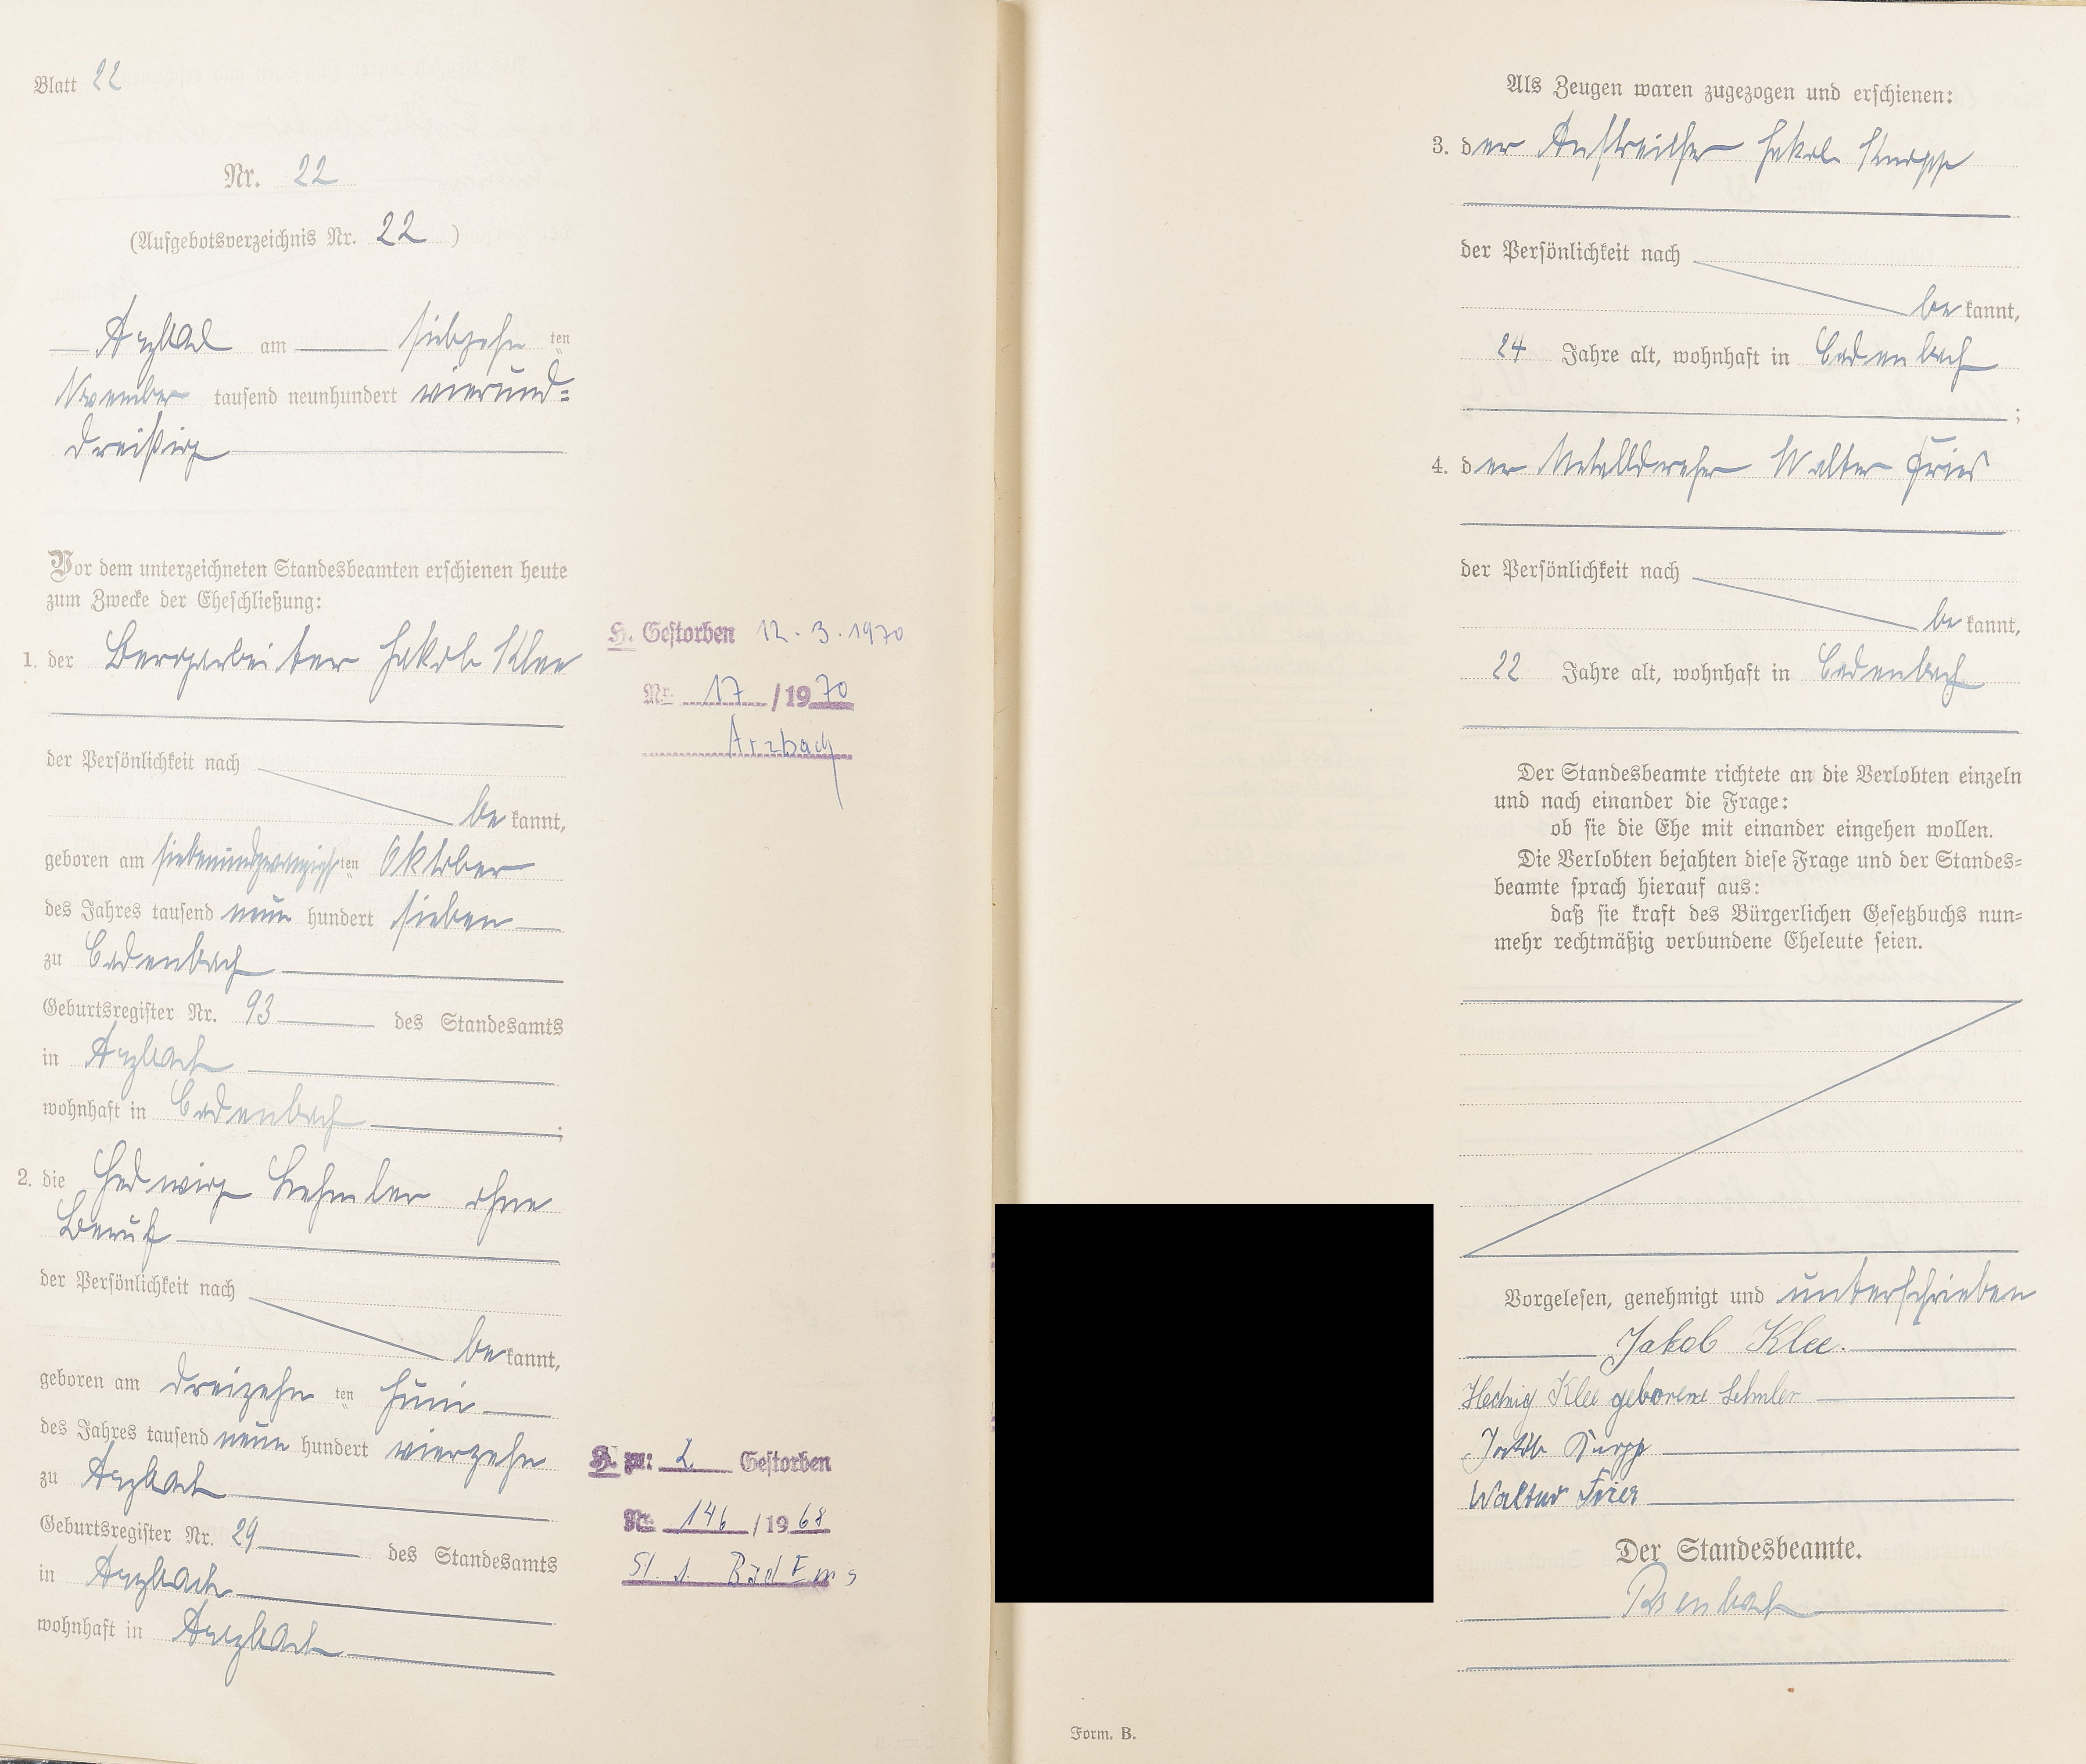 Blatt 22
Nr. 22
(Aufgebotsverzeichnis Nr. 22)
Arzbach am siebzehn ten
November tausend neunhundert vierund-
dreißig
Vor dem unterzeichneten Standesbeamten erschienen heute
zum Zwecke der Eheschließung:
1. der Bergarbeiter Jakob Klee
der Persönlichkeit nach
be kannt,
geboren am siebenundzwanzigsten Oktober
des Jahres tausend neun hundert sieben
zu Cadenbach
Geburtsregister Nr. 93 des Standesamts
in Arzbach
wohnhaft in Cadenbach;
2. die Hedwig Lehmler ohne
Beruf
der Persönlichkeit nach
be kannt,
geboren am dreizehn ten Juni
des Jahres tausend neun hundert vierzehn
zu Arzbach
Geburtsregister Nr. 29 des Standesamts
in Arzbach
wohnhaft in Arzbach
H. Gestorben 12.3.1970
Nr. 17/1970
Arzbach
H. zu: 2 Gestorben
Nr. 146/1968
St. A. Bad Ems
Als Zeugen waren zugezogen und erschienen:
3. der Anstreicher Jakob Knopp
der Persönlichkeit nach
be kannt,
24 Jahre alt, wohnhaft in Cadenbach
;
4. der Metalldreher Walter Fries
der Persönlichkeit nach
be kannt,
22 Jahre alt, wohnhaft in Cadenbach
Der Standesbeamte richtete an die Verlobten einzeln
und nach einander die Frage:
ob sie die Ehe mit einander eingehen wollen.
Die Verlobten bejahten diese Frage und der Standes-
beamte sprach hierauf aus:
daß sie kraft des Bürgerlichen Gesetzbuchs nun-
mehr rechtmäßig verbundene Eheleute seien.
Vorgelesen, genehmigt und unterschrieben
Jakob Klee.
Hedwig Klee geborene Lehmler
Jakob Knopp
Walter Fries
Der Standesbeamte.
Form. B.